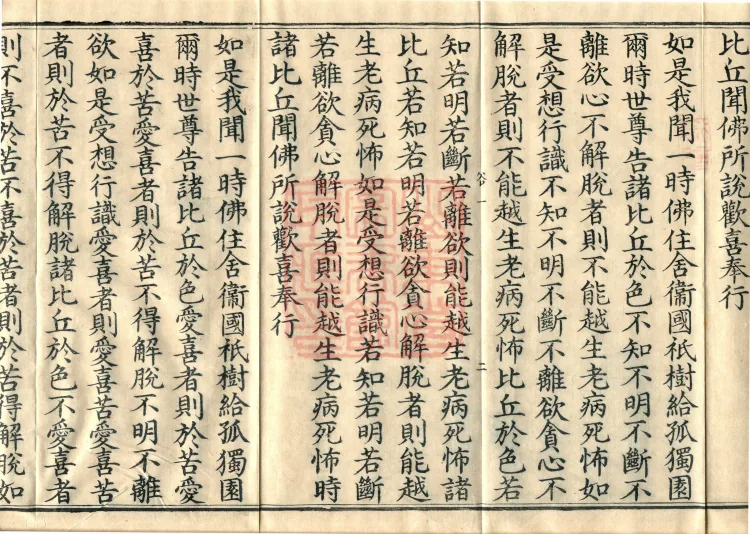 比丘聞佛所說歡喜奉行
如是我聞一時佛住舍衞國祇樹給孤獨園
爾時世尊告諸比丘於色不知不明不斷不
離欲心不解脫者則不能越生老病死怖如
是受想行識不知不明不斷不離欲貪心不
解脫者則不能越生老病死怖比丘於色若
一 二
知若明若斷若離欲則能越生老病死怖諸
比丘若知若明若離欲貪心解脫者則能越
生老病死怖如是受想行識若知若明若斷
若離欲貪心解脫者則能越生老病死怖時
諸比丘聞佛所說歡喜奉行
如是我聞一時佛住舍衞國祇樹給孤獨園
爾時世尊告諸比丘於色愛喜者則於苦愛
喜於苦愛喜者則於苦不得解脫不明不離
欲如是受想行識愛喜者則愛喜苦愛喜苦
者則於苦不得解脫諸比丘於色不愛喜者
則不喜於苦不喜於苦者則於苦得解脫如